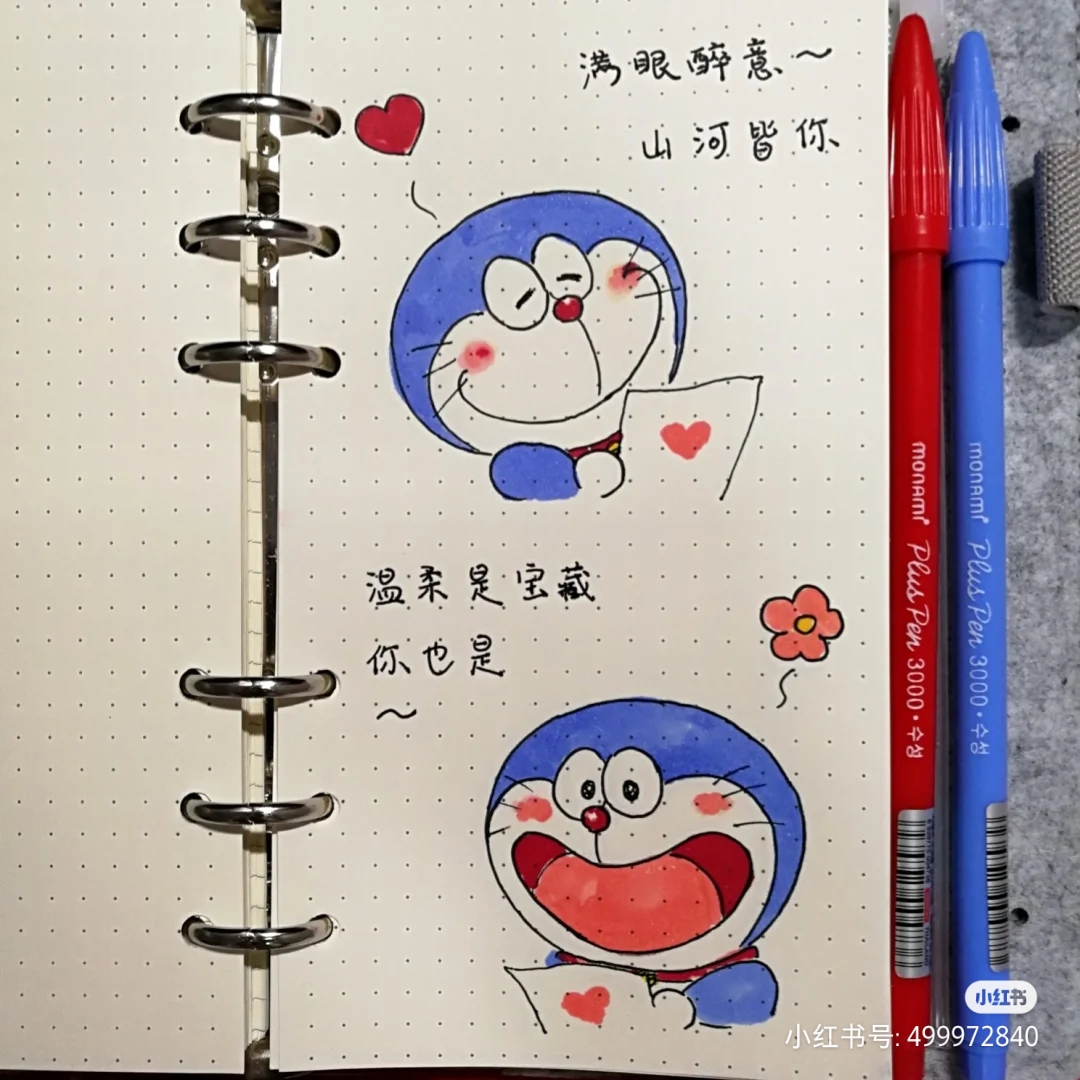 满眼醉意～
山河皆你
温柔是宝藏
你也是
～
monami Plus Pen 3000 · 수성
monami Plus Pen 3000 · 수성
小红书
小红书号: 499972840